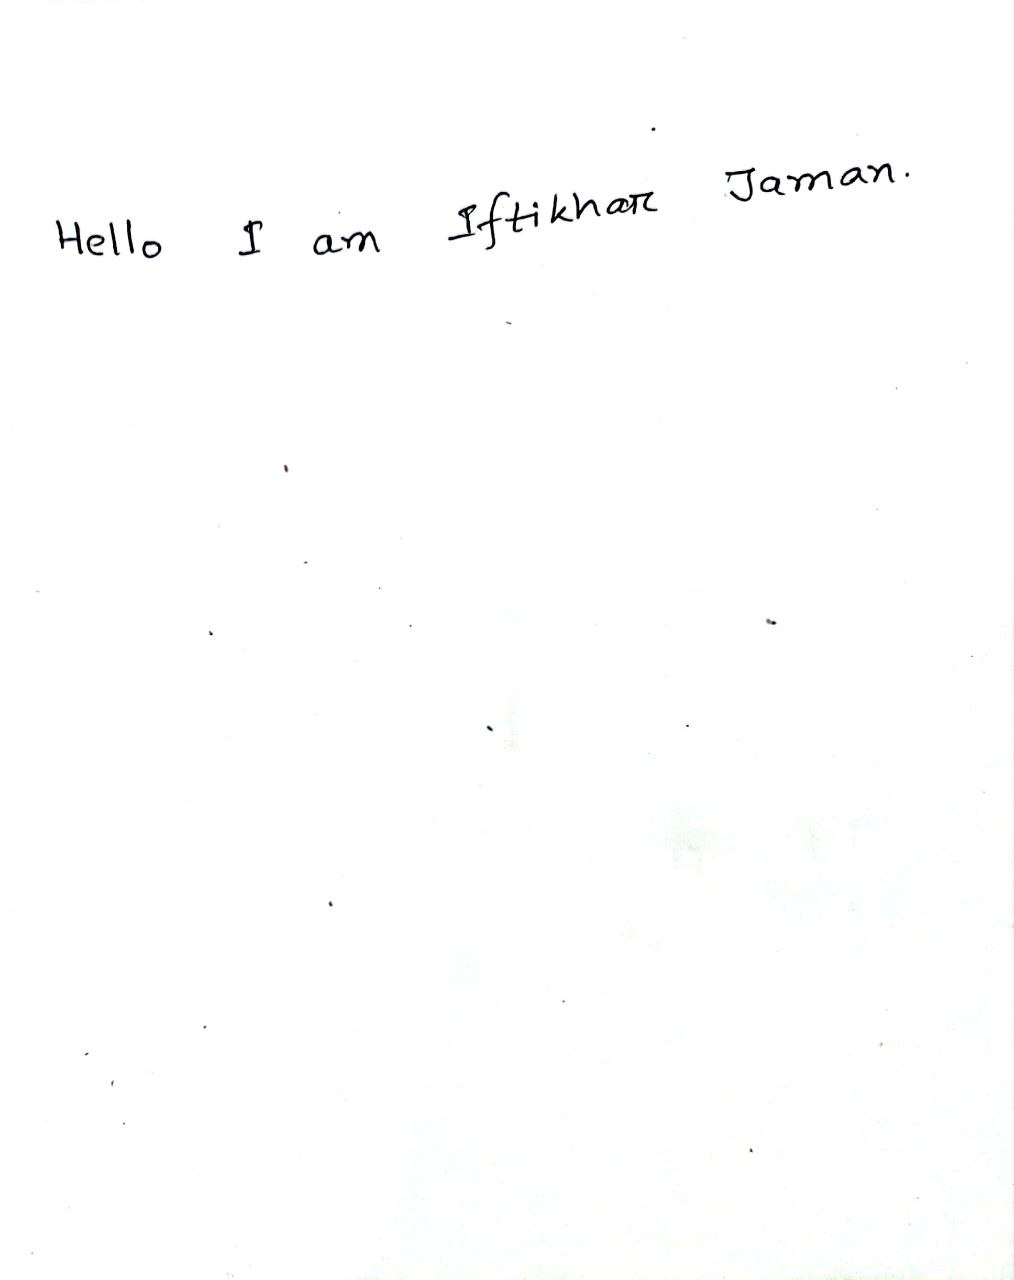 Hello I am Iftikhar Jaman.